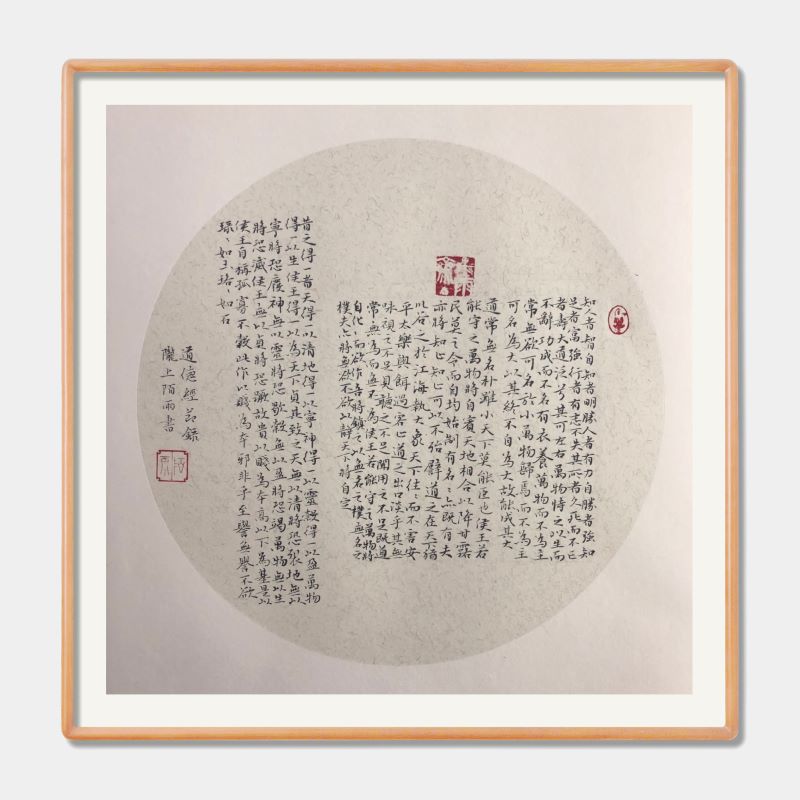 知人者智自知者明勝人者有力自勝者強知
足者富強行者有志不失其所者久死而不亡
者壽大道泛兮其可左右萬物恃之以生而
不辭功成而不名有衣養萬物而不為主
常無欲可名於小萬物歸焉而不為主
可名為大以其終不自為大故能成其大
道常無名朴雖小天下莫能臣也侯王若
能守之萬物將自賓天地相合以降甘露
民莫之令而自均始制有名〻亦既有夫
亦將知止知止可以不殆譬道之在天下猶
川谷之於江海執大象天下往〻而不害安
平太樂與餌過客止道之出口淡乎其無
味視之不足見聽之不足聞用之不足既道
常無為而無不為侯王若能守之萬物將
自化〻而欲作吾將鎮之以無名之樸無名之
樸夫亦將無欲不欲以靜天下將自定
昔之得一者天得一以清地得一以寧神得一以靈穀得一以盈萬物
得一以生侯王得一以為天下貞其致之天無以清將恐裂地無以
寧將恐廢神無以靈將恐歇穀無以盈將恐竭萬物無以生
將恐滅侯王無以貞將恐蹶故貴以賤為本高以下為基是以
侯王自稱孤寡不穀此作以賤為本邪非乎至譽無譽不欲
琭〻如玉珞〻如石
道德經節錄
隴上陌雨書